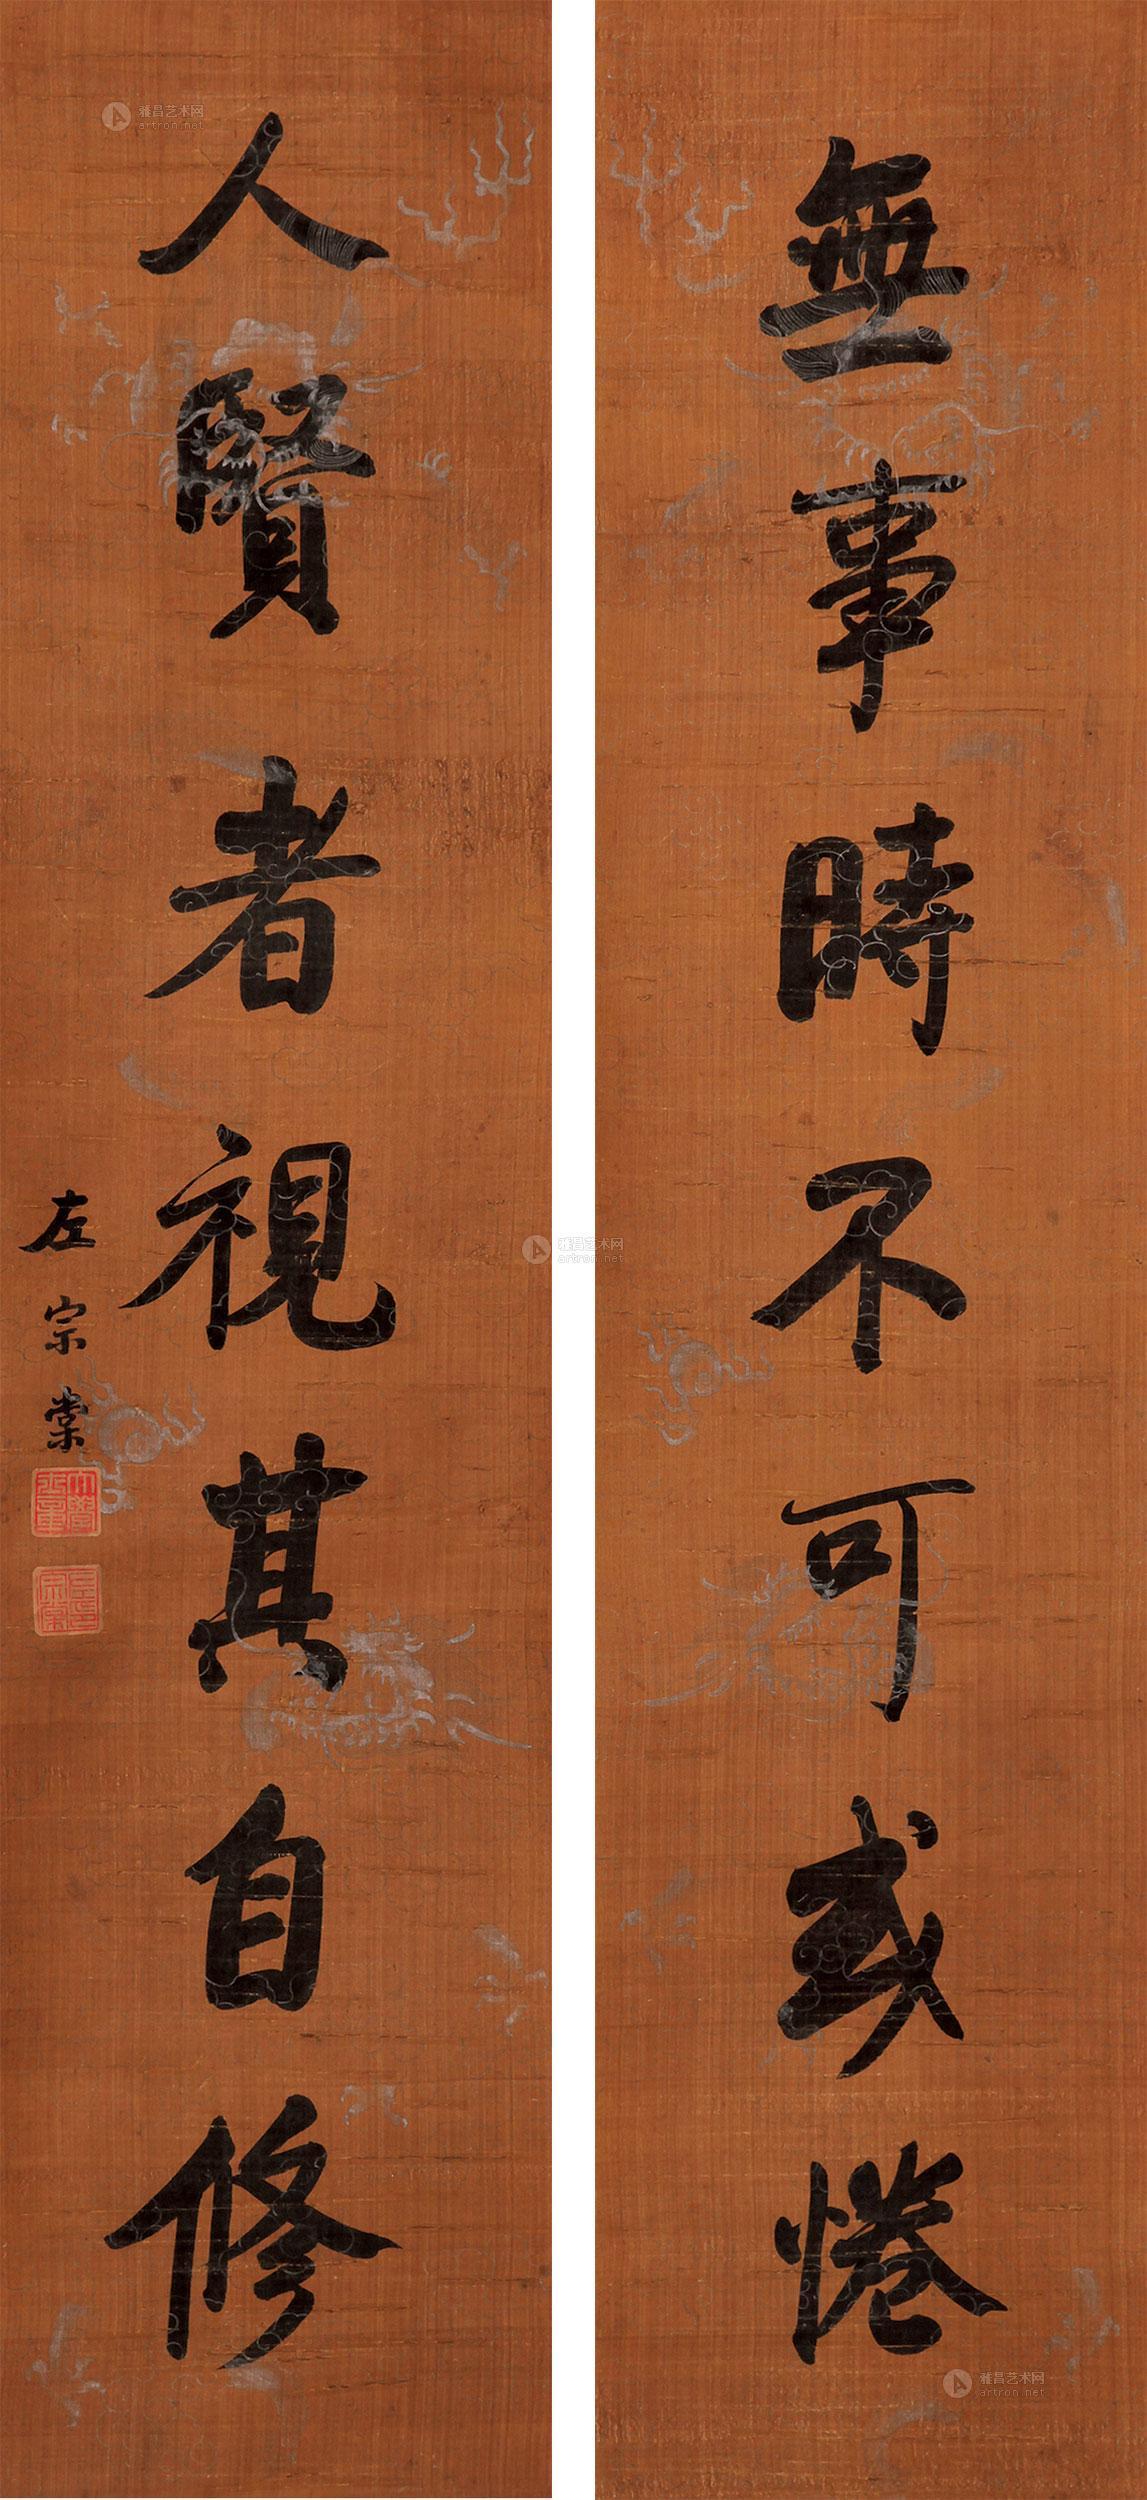 無事時不可或惓
人賢者視其自修
左宗棠
大學士章
左宗棠印
雅昌艺术网
artron.net
雅昌艺术网
artron.net
雅昌艺术网
artron.net